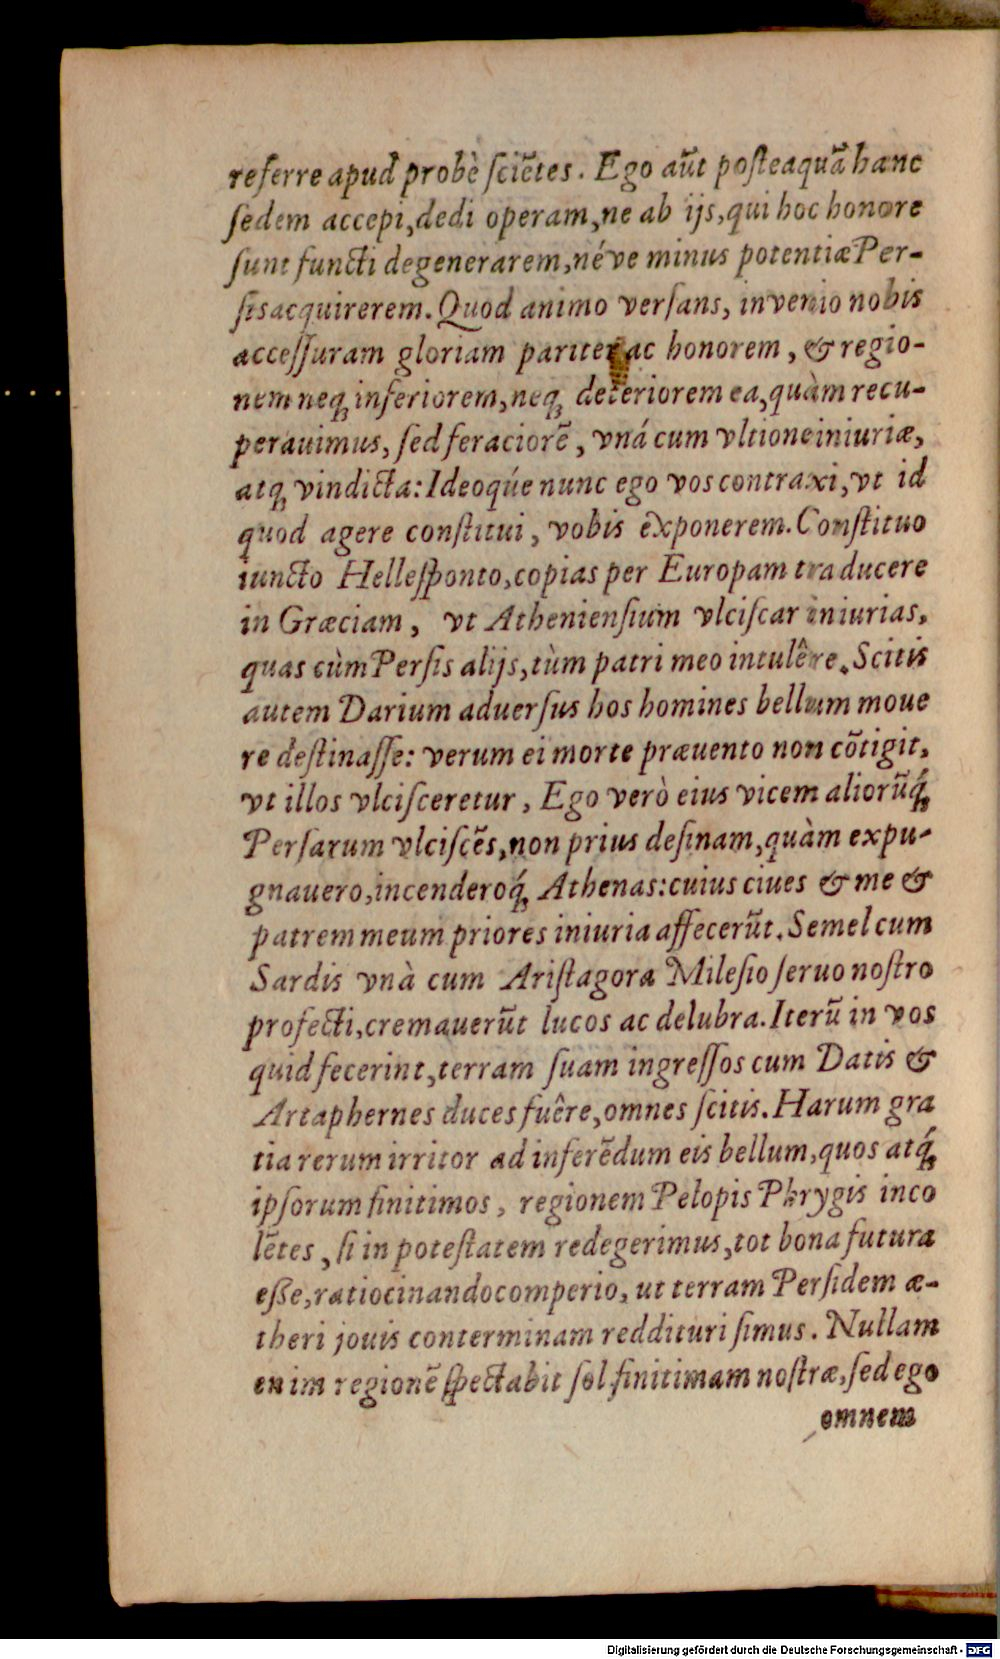 referre apud probè ſciẽtes. Ego aũt poſteaquã hanc
ſedem accepi, dedi operam, ne ab ijs, qui hoc honore
ſunt functi degenerarem, néve minus potentiæ Per-
ſis acquirerem. Quod animo verſans, invenio nobis
acceſſuram gloriam pariter ac honorem, & regio-
nem neq́; inferiorem, neq; deteriorem ea, quàm recu-
perauimus, ſed feraciorẽ, vná cum vltione iniuriæ,
atq; vindicta: Ideoqúe nunc ego vos contraxi, vt id
quod agere conſtitui, vobis exponerem. Conſtituo
iuncto Helleſponto, copias per Europam traducere
in Græciam, vt Athenienſium vlciſcar iniurias,
quas cùm Perſis alijs, tùm patri meo intulêre. Scitis
autem Darium aduerſus hos homines bellum moue
re deſtinaſſe: verum ei morte præuento non cõtigit,
vt illos vlciſceretur, Ego verò eius vicem aliorũq́;
Perſarum vlciſcẽs, non prius deſinam, quàm expu-
gnauero, incenderoq́; Athenas: cuius ciues & me &
patrem meum priores iniuria affecerũt. Semel cum
Sardis vnà cum Ariſtagora Mileſio ſeruo noſtro
profecti, cremauerũt lucos ac delubra. Iterũ in vos
quid fecerint, terram ſuam ingreſſos cum Datis &
Artaphernes duces fuêre, omnes ſcitis. Harum gra
tia rerum irritor ad inferẽdum eis bellum, quos atq́;
ipſorum finitimos, regionem Pelopis Phrygis inco
lẽtes, ſi in poteſtatem redegerimus, tot bona futura
eſſe, ratiocinando comperio, ut terram Perſidem æ-
theri jouis conterminam reddituri ſimus. Nullam
enim regionẽ ſpectabit ſol finitimam noſtræ, ſed ego
omnem
Digitalisierung gefördert durch die Deutsche Forschungsgemeinschaft - DFG